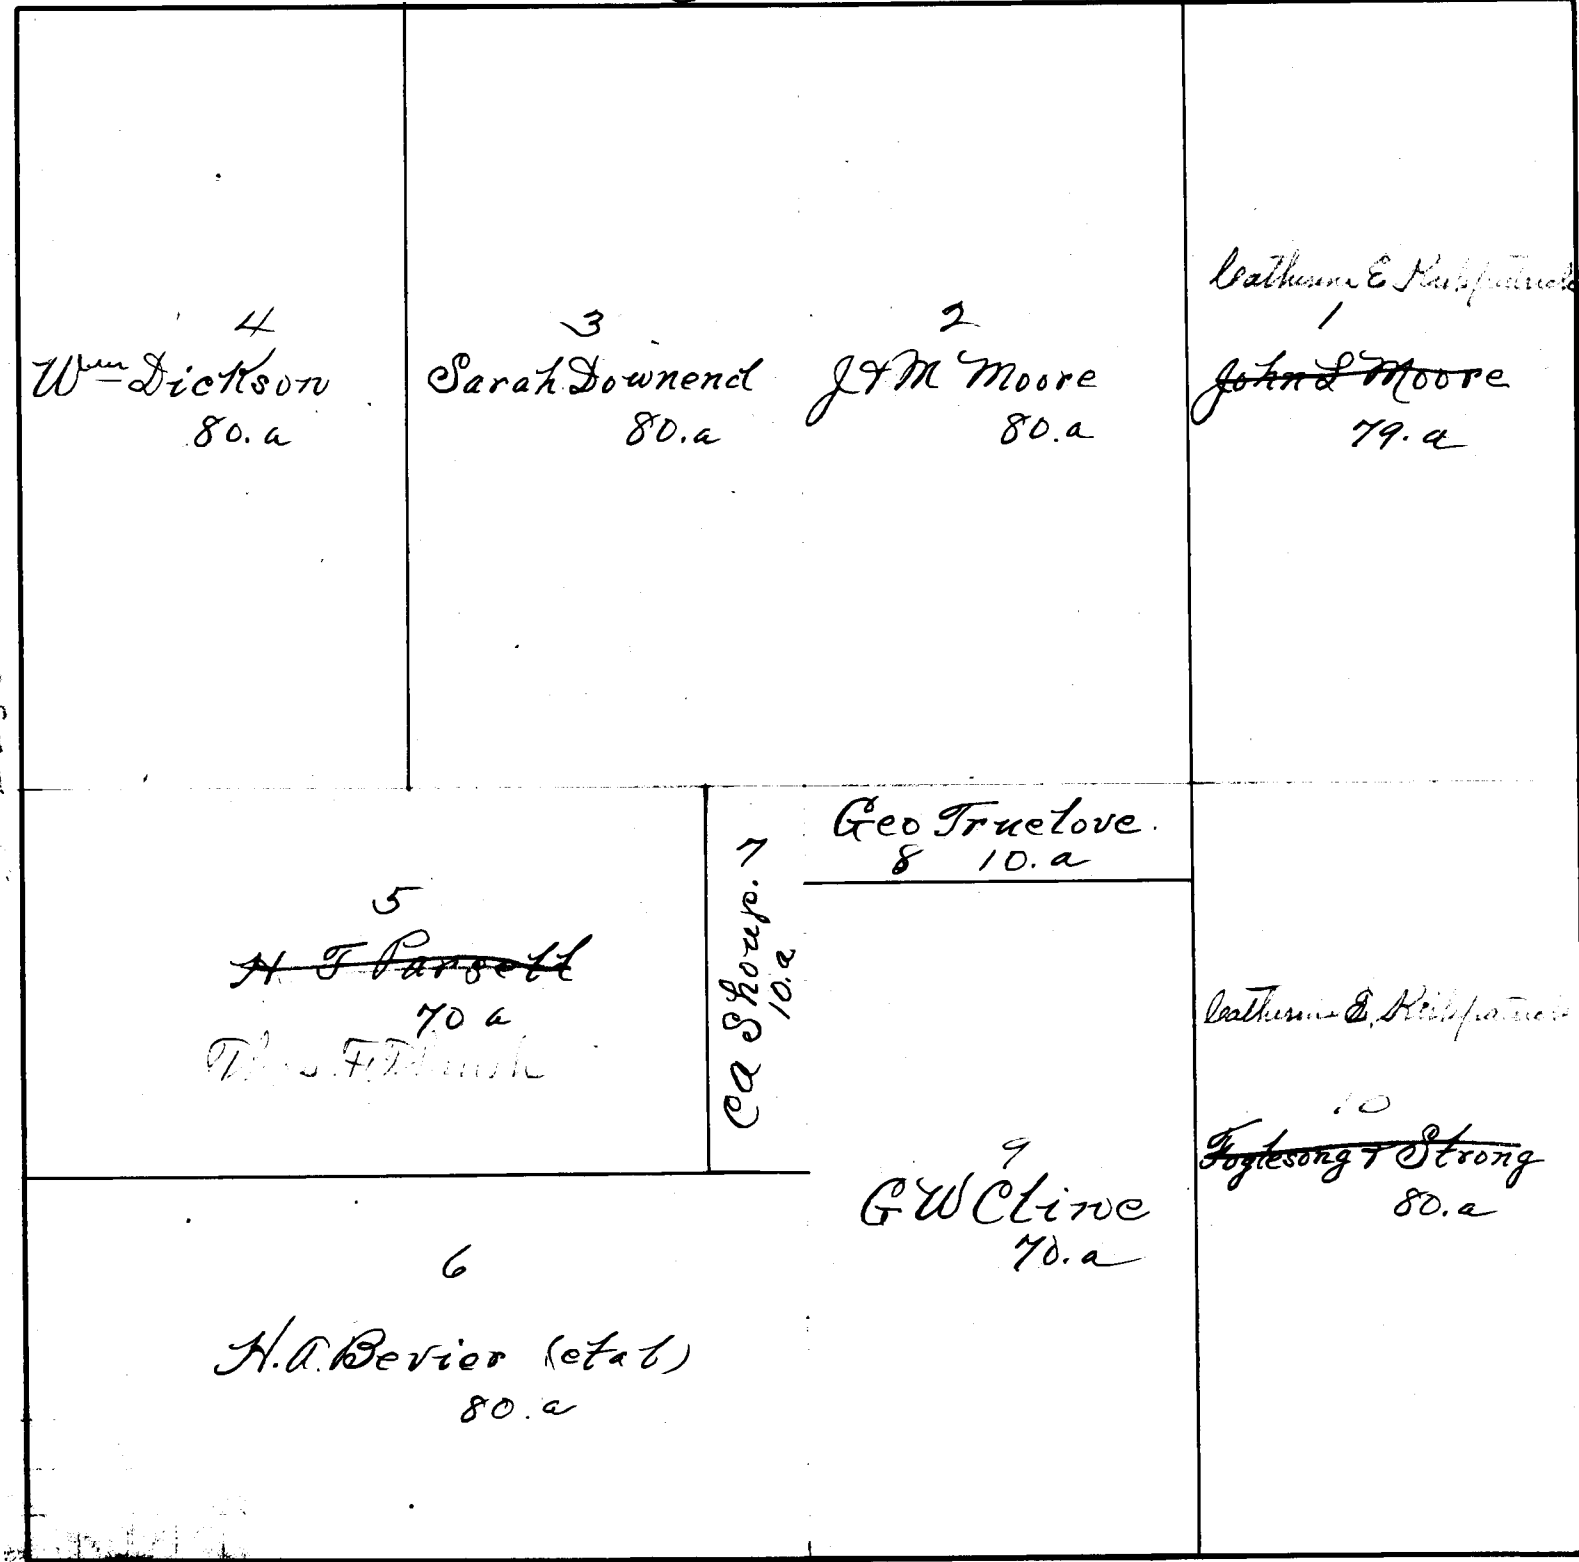 4
Wm Dickson
80.a
3
Sarah Downend
80.a
2
J & M Moore
80.a
Catherine E Kirkpatrick
1
John L Moore
79.a
5
H T Parsell
70 a
CA Shoup. 7
10.a
Geo Truelove.
8 10.a
9
G W Cline
70.a
Catherine E. Kirkpatrick
10
Foglesong & Strong
80.a
6
H.A. Bevier (etal)
80.a